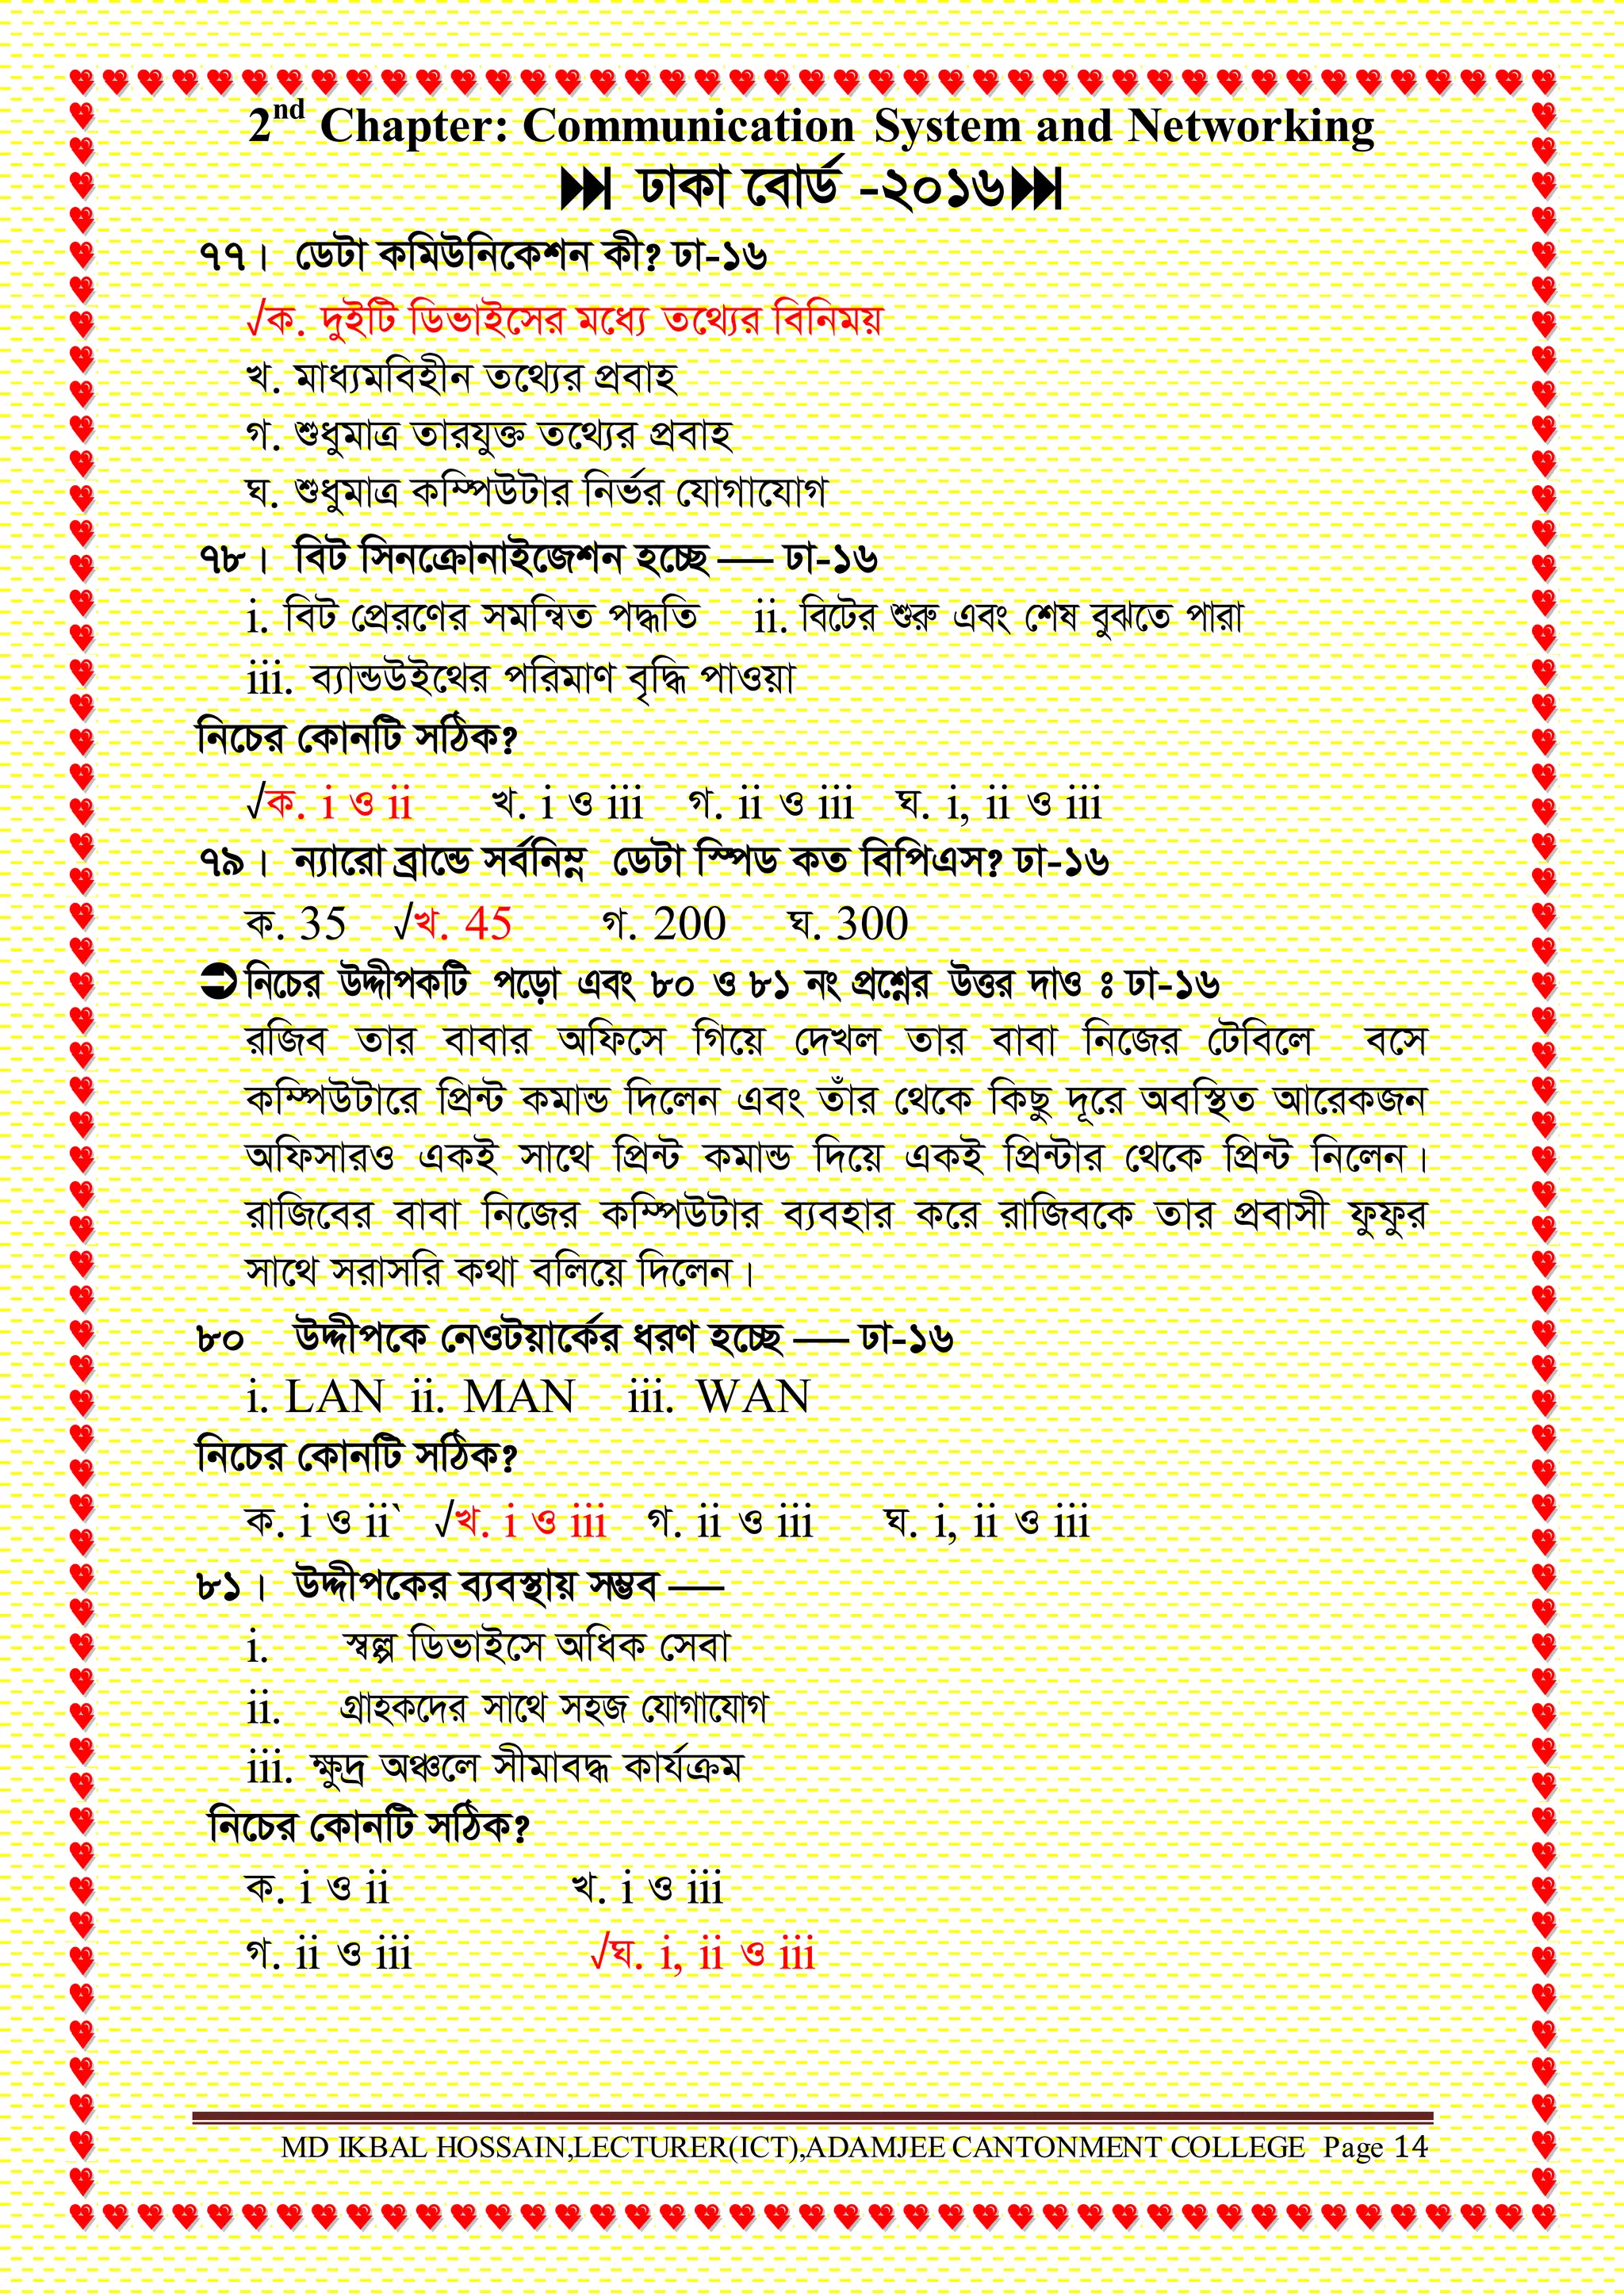 2nd Chapter: Communication System and Networking
ঢাকা বোর্ড -২০১৬
৭৭। ডেটা কমিউনিকেশন কী? ঢা-১৬
√ক. দুইটি ডিভাইসের মধ্যে তথ্যের বিনিময়
খ. মাধ্যমবিহীন তথ্যের প্রবাহ
গ. শুধুমাত্র তারযুক্ত তথ্যের প্রবাহ
ঘ. শুধুমাত্র কম্পিউটার নির্ভর যোগাযোগ
৭৮। বিট সিনক্রোনাইজেশন হচ্ছে — ঢা-১৬
i. বিট প্রেরণের সমন্বিত পদ্ধতি ii. বিটের শুরু এবং শেষ বুঝতে পারা
iii. ব্যান্ডউইথের পরিমাণ বৃদ্ধি পাওয়া
নিচের কোনটি সঠিক?
√ক. i ও ii খ. i ও iii গ. ii ও iii ঘ. i, ii ও iii
৭৯। ন্যারো ব্রান্ডে সর্বনিম্ন ডেটা স্পিড কত বিপিএস? ঢা-১৬
ক. 35 √খ. 45 গ. 200 ঘ. 300
নিচের উদ্দীপকটি পড়ো এবং ৮০ ও ৮১ নং প্রশ্নের উত্তর দাও ঃ ঢা-১৬
রজিব তার বাবার অফিসে গিয়ে দেখল তার বাবা নিজের টেবিলে বসে
কম্পিউটারে প্রিন্ট কমান্ড দিলেন এবং তাঁর থেকে কিছু দূরে অবস্থিত আরেকজন
অফিসারও একই সাথে প্রিন্ট কমান্ড দিয়ে একই প্রিন্টার থেকে প্রিন্ট নিলেন।
রাজিবের বাবা নিজের কম্পিউটার ব্যবহার করে রাজিবকে তার প্রবাসী ফুফুর
সাথে সরাসরি কথা বলিয়ে দিলেন।
৮০ উদ্দীপকে নেওটয়ার্কের ধরণ হচ্ছে — ঢা-১৬
i. LAN ii. MAN iii. WAN
নিচের কোনটি সঠিক?
ক. i ও ii` √খ. i ও iii গ. ii ও iii ঘ. i, ii ও iii
৮১। উদ্দীপকের ব্যবস্থায় সম্ভব —
i. স্বল্প ডিভাইসে অধিক সেবা
ii. গ্রাহকদের সাথে সহজ যোগাযোগ
iii. ক্ষুদ্র অঞ্চলে সীমাবদ্ধ কার্যক্রম
নিচের কোনটি সঠিক?
ক. i ও ii খ. i ও iii
গ. ii ও iii √ঘ. i, ii ও iii
MD IKBAL HOSSAIN,LECTURER(ICT),ADAMJEE CANTONMENT COLLEGE Page 14